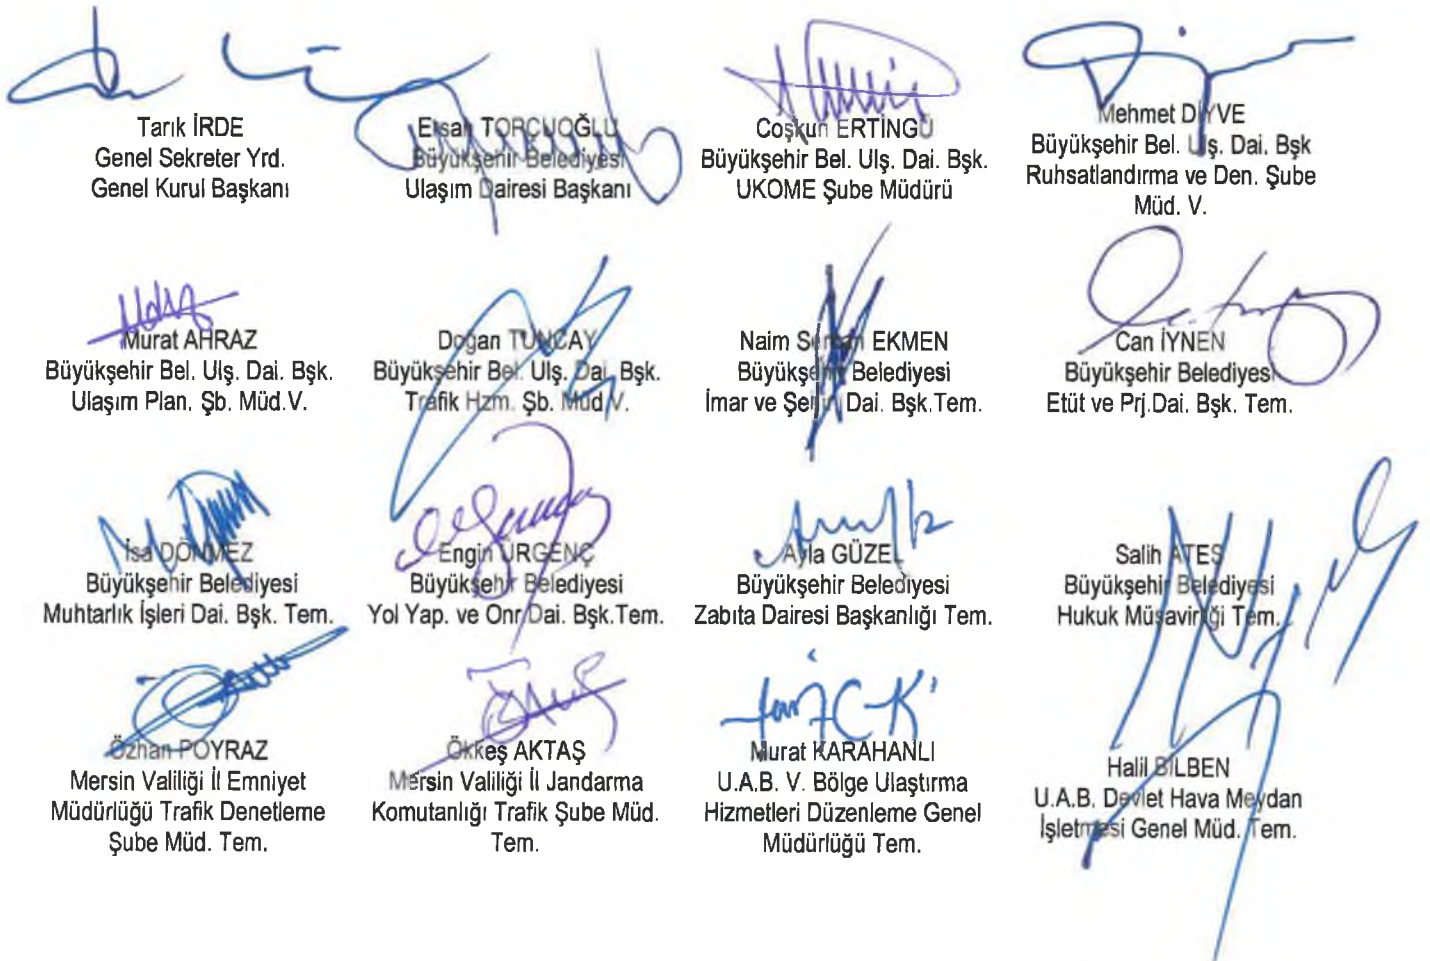 Tarık İRDE
Genel Sekreter Yrd.
Genel Kurul Başkanı
Ersan TOPÇUOĞLU
Büyükşehir Belediyesi
Ulaşım Dairesi Başkanı
Coşkun ERTİNGÜ
Büyükşehir Bel. Ulş. Dai. Bşk.
UKOME Şube Müdürü
Mehmet DİYVE
Büyükşehir Bel. Ulş. Dai. Bşk
Ruhsatlandırma ve Den. Şube
Müd. V.
Murat AHRAZ
Büyükşehir Bel. Ulş. Dai. Bşk.
Ulaşım Plan. Şb. Müd.V.
Doğan TUNCAY
Büyükşehir Bel. Ulş. Dai. Bşk.
Trafik Hzm. Şb. Müd.V.
Naim EKMEN
Büyükşehir Belediyesi
İmar ve Şehir. Dai. Bşk.Tem.
Can İYNEN
Büyükşehir Belediyesi
Etüt ve Prj.Dai. Bşk. Tem.
İsa DÖNMEZ
Büyükşehir Belediyesi
Muhtarlık İşleri Dai. Bşk. Tem.
Engin ÜRGENÇ
Büyükşehir Belediyesi
Yol Yap. ve Onr.Dai. Bşk.Tem.
Ayla GÜZEL
Büyükşehir Belediyesi
Zabıta Dairesi Başkanlığı Tem.
Salih ATEŞ
Büyükşehir Belediyesi
Hukuk Müşavirliği Tem.
Özhan POYRAZ
Mersin Valiliği İl Emniyet
Müdürlüğü Trafik Denetleme
Şube Müd. Tem.
Ökkeş AKTAŞ
Mersin Valiliği İl Jandarma
Komutanlığı Trafik Şube Müd.
Tem.
Murat KARAHANLI
U.A.B. V. Bölge Ulaştırma
Hizmetleri Düzenleme Genel
Müdürlüğü Tem.
Halil BİLBEN
U.A.B. Devlet Hava Meydan
İşletmesi Genel Müd. Tem.